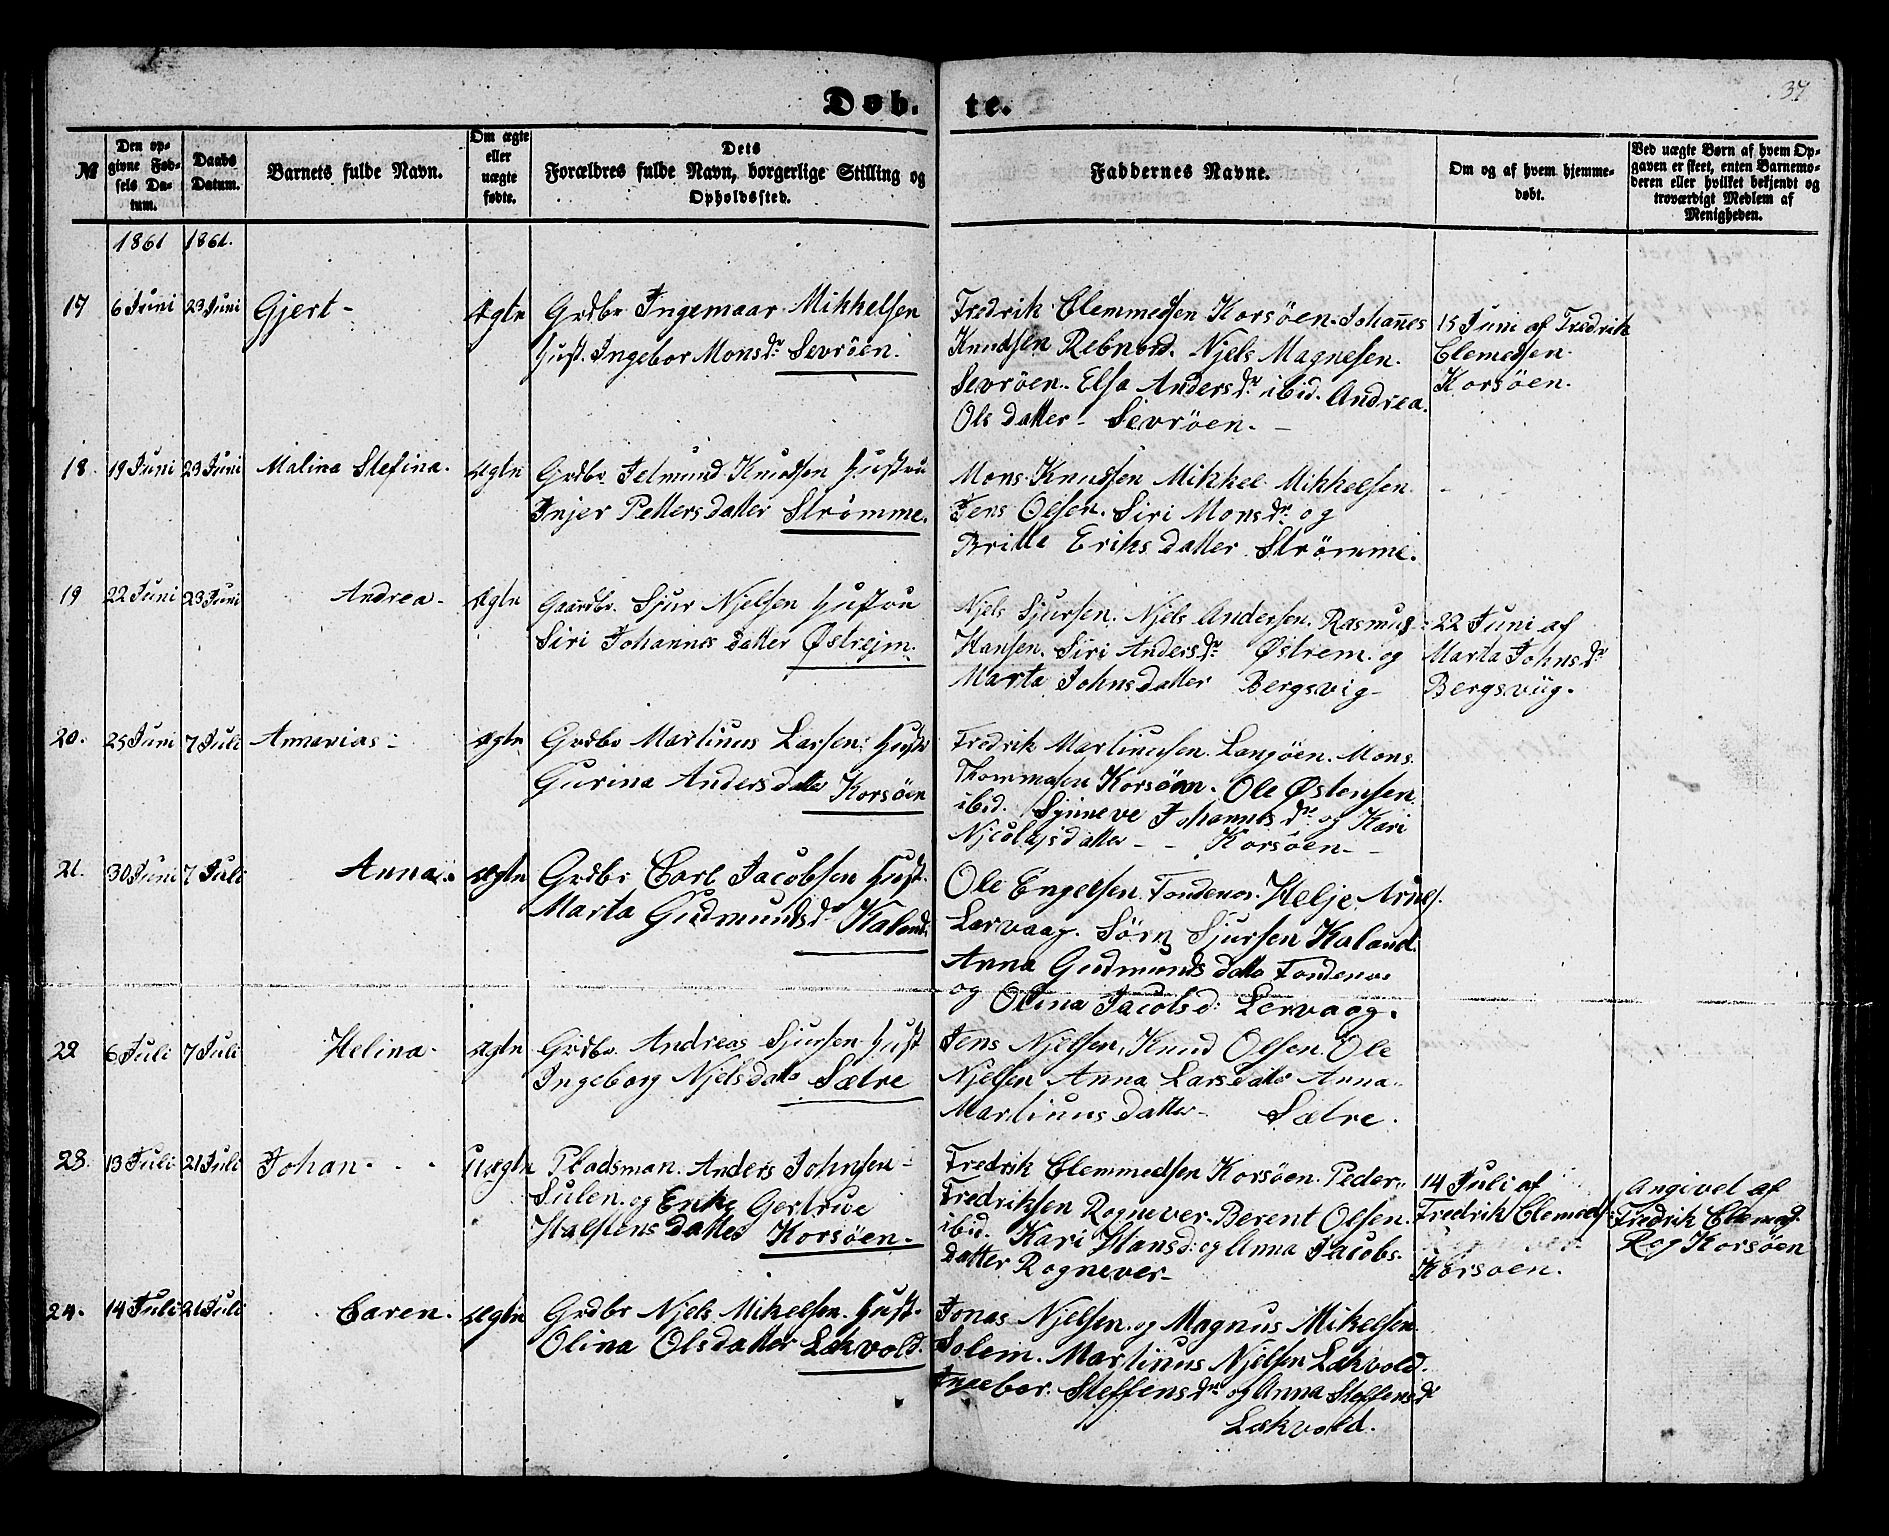 37
Døb. te.
№
Den op-
givne Fød-
sels Da-
tum.
Daabs
Datum.
Barnets fulde Navn.
Om ægte
eller
uægte
fødte.
Dets
Forældres fulde Navn, borgerlige Stilling og
Opholdssted.
Faddernes Navne.
Om og af hvem hjemme-
døbt.
Ved uægte Børn af hvem Op-
gaven er skeet, enten Barnemo-
deren eller hvilket bekjendt og
troværdigt Medlem af
Menigheden.
1861 1861.
17 6 Juni 23 Juni Gjert - Ægte
Grdbr Ingemaar Mikkelsen
Hust. Ingebor Monsdr Sevröen.
Fredrik Clemmedsen Korsöen. Johannes
Knudsen Rebnord. Njels Magnesen.
Sevröen. Elsa Andersdr ibid. Andrea
Ols datter - Sevröen. -
15 Juni af Fredrik
Clemedsen
Korsöen.
18. 19 Juni 23 Juni Malina Stefina. ægte
Grdbr Jetmund Knudsen Hustru
Injer Petters datter Strømme.
Mons Knudsen Mikkel Mikkelsen.
Jens Olsen. Siri Monsdr og
Britte Eriks datter Strömme.
19 22 Juni 23 Juni Andrea - Ægte
Gaardbr. Sjur Njelsen Hustru
Siri Johannes datter Østrejm.
Njels Sjursen. Njels Andersen. Rasmus
Hansen. Siri Andersdr Østrem. og
Marta Johnsdatter Bergsvig -
22 Juni af
Marta Johnsdr
Bergsviig.
20. 25 Juni 7 Juli Annanias - ægte
Grdbr Martinus Larsen Hustr
Gurina Anders datter Korsöen
Fredrik Martinusen. Langöen. Mons
Thommasen Korsöen. Ole Østensen
ibid. Synneve Johannes dr og Kari
Njcolajsdatter - - Korsöen -
21. 30 Juni 7 Juli Anna. ægte
Grdbr Carl Jacobsen Hust.
Marta Gudmundsdr Kaland.
Ole Engelsen. Tondenes. Helje Arnes.
Lervaag. Sörn Sjursen Kaland.
Anna Gudmunds datter Tondenes
og Olina Jacobsd: Lervaag.
22 6 Juli 7 Juli Helina - ægte
Grdbr. Andreas Sjursen Hust
Ingeborg Njelsdatter Sætre
Jens Njelsen, Knud Olsen. Ole
Njelsen Anna Larsdatter Anna
Martinusdatter - Sætre.
23. 13 Juli 21 Juli Johan - - - Uægte
Pladsman. Anders Johnsen -
Sulen. og Enke Gertrue
Halstens datter Korsöen -
Fredrik Clemmedsen Korsöen. Peder
Fredriksen Rognever. Berent Olsen.
ibid. Kari Hansd: og Anna Jacobs
datter Rognever -
14 Juli af
Fredrik Clemeds
Korsöen.
Angivet af
Fredrik Clemeds
Korsöen
24. 14 Juli 21 Juli Caren. ægte
Grdbr Njels Mikelsen. Hust.
Olina Olsdatter Lekvold.
Jonas Njelsen. og Magnus Mikelsen
Solem. Martinus Njelsen Lekvold.
Ingebor. Steffensdr og Anna Steffensdr
Lekvold.